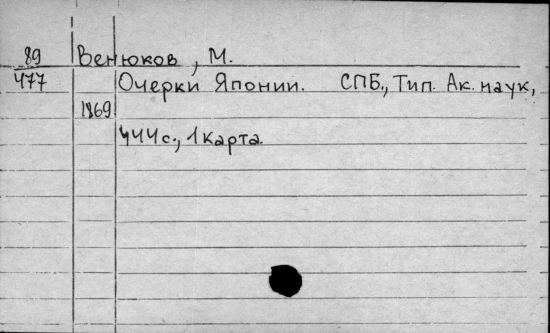 89 Венюков, М.
477 Очерки Японии. СПБ., Тип. Ак. наук,
1869
444 с., 1 карта.